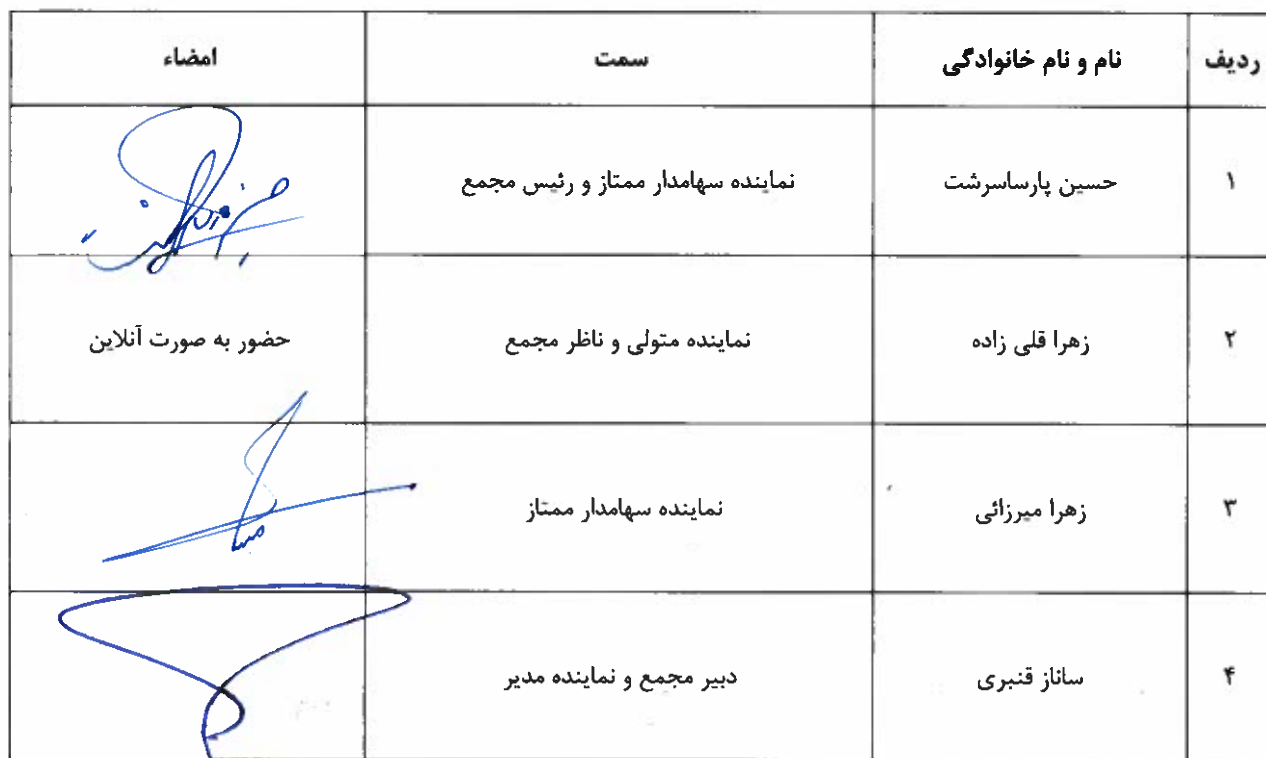 ردیف نام و نام خانوادگی سمت امضاء
۱ حسین پارساسرشت نماینده سهامدار ممتاز و رئیس مجمع
۲ زهرا قلی زاده نماینده متولی و ناظر مجمع حضور به صورت آنلاین
۳ زهرا میرزائی نماینده سهامدار ممتاز
۴ ساناز قنبری دبیر مجمع و نماینده مدیر